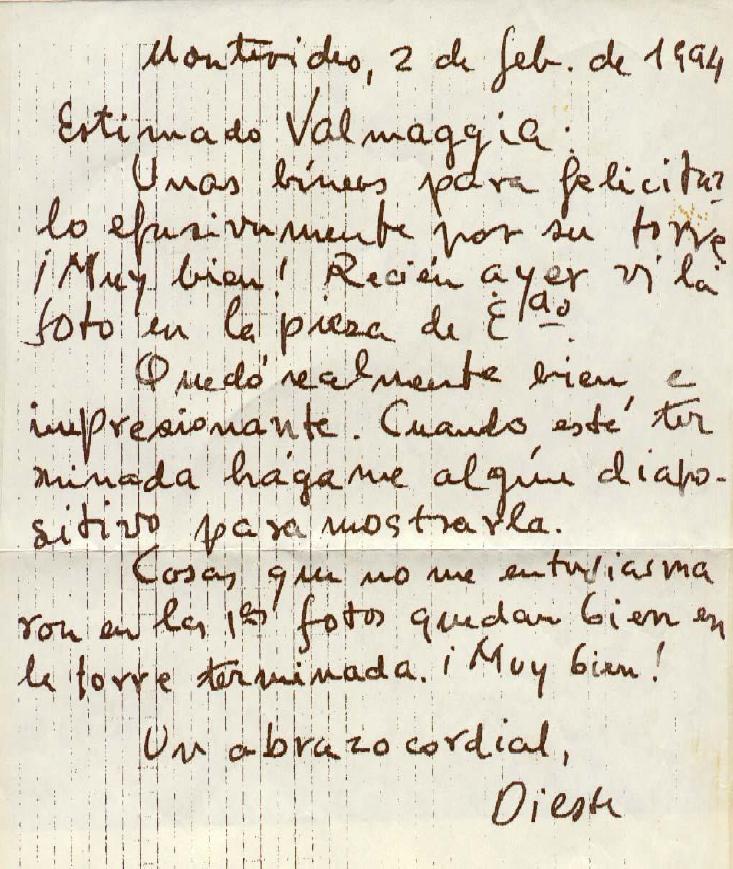 Montevideo, 2 de feb. de 1994
Estimado Valmaggia:
Unas líneas para felicitar
lo efusivamente por su torre
¡Muy bien! Recién ayer vi la
foto en la pieza de Edo.
Quedó realmente bien e
impresionante. Cuando esté ter
minada hágame algún diapo-
sitivo para mostrarla.
Cosas que no me entusiasma
ron en las 1as fotos quedan bien en
la torre terminada. ¡Muy bien!
Un abrazo cordial,
Dieste